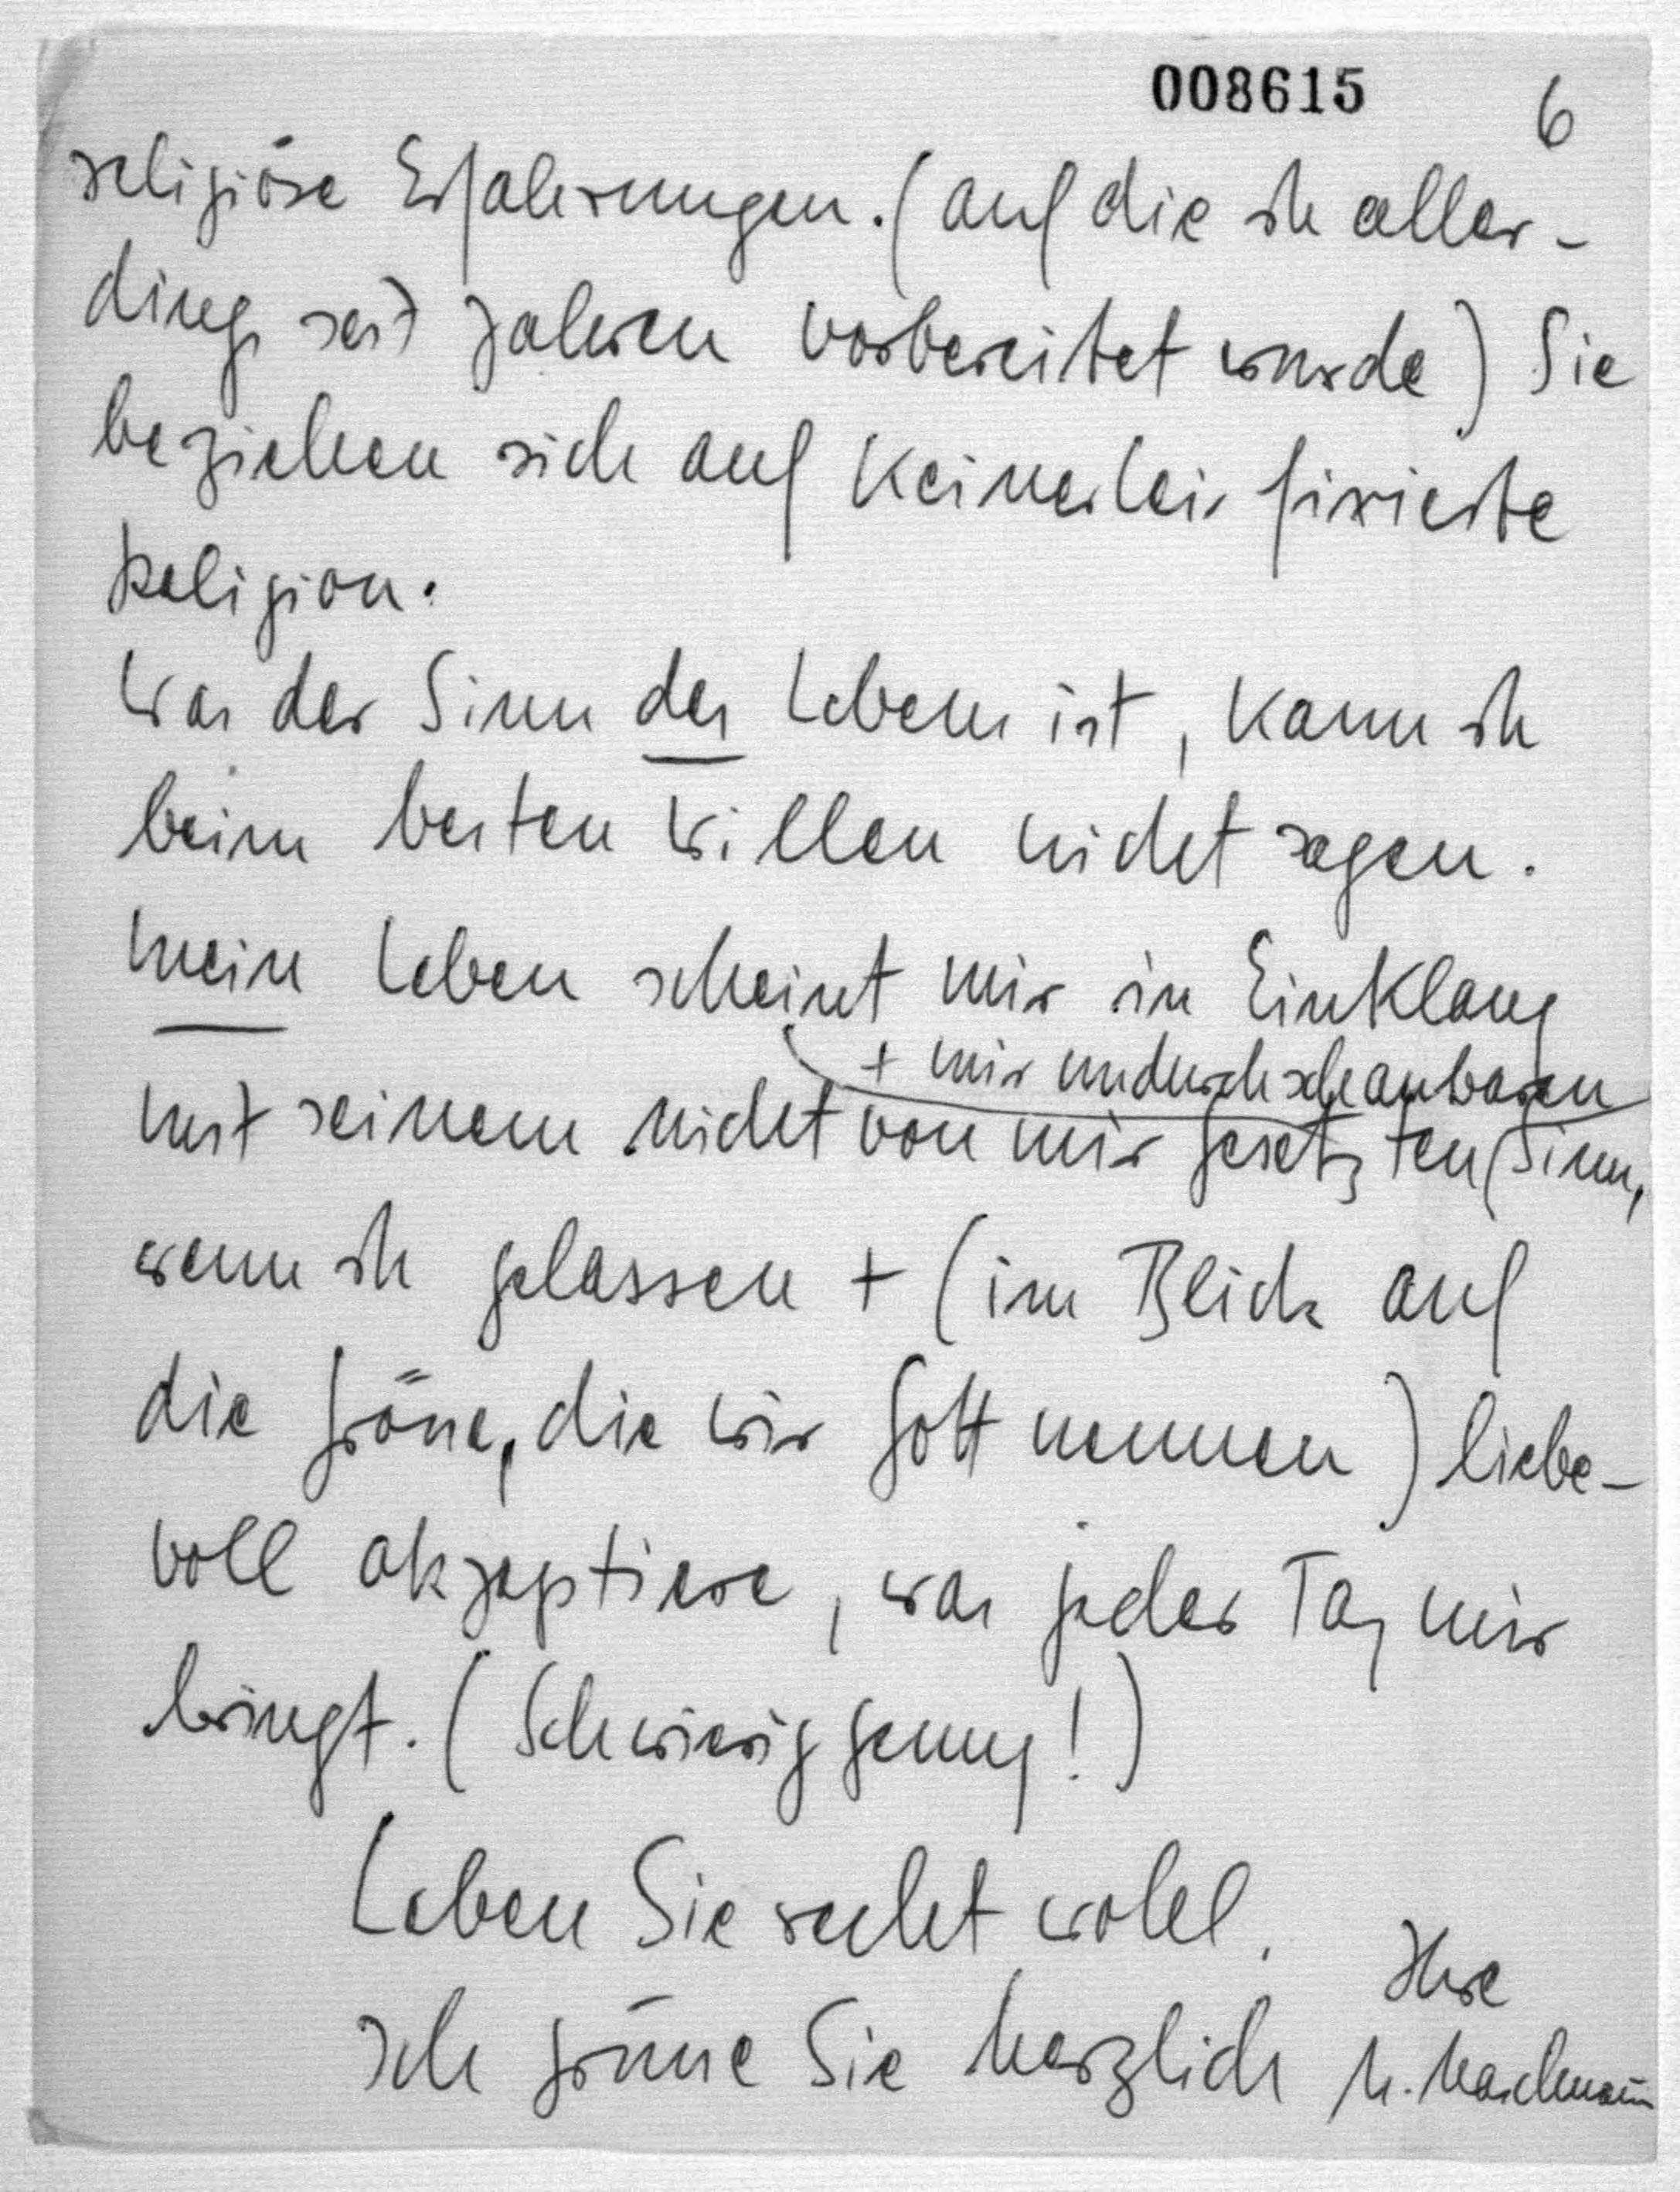 008615 6
religiöse Erfahrungen. (auf die ich aller-
dings seit Jahren vorbereitet wurde) Sie
beziehen sich auf keinerlei fixierte
Religion.
Was der Sinn des Lebens ist, kann ich
beim besten Willen nicht sagen.
Mein Leben scheint mir im Einklang
+ mir undurchschaubaren
mit seinem nicht von mir gesetzten Sinn,
wenn ich gelassen + (im Blick auf
die Grösse, die wir Gott nennen) liebe-
voll akzeptiere, was jeder Tag mir
bringt. (Schwierig genug!)
Leben Sie recht wohl.
Ihre
Ich grüsse Sie herzlich